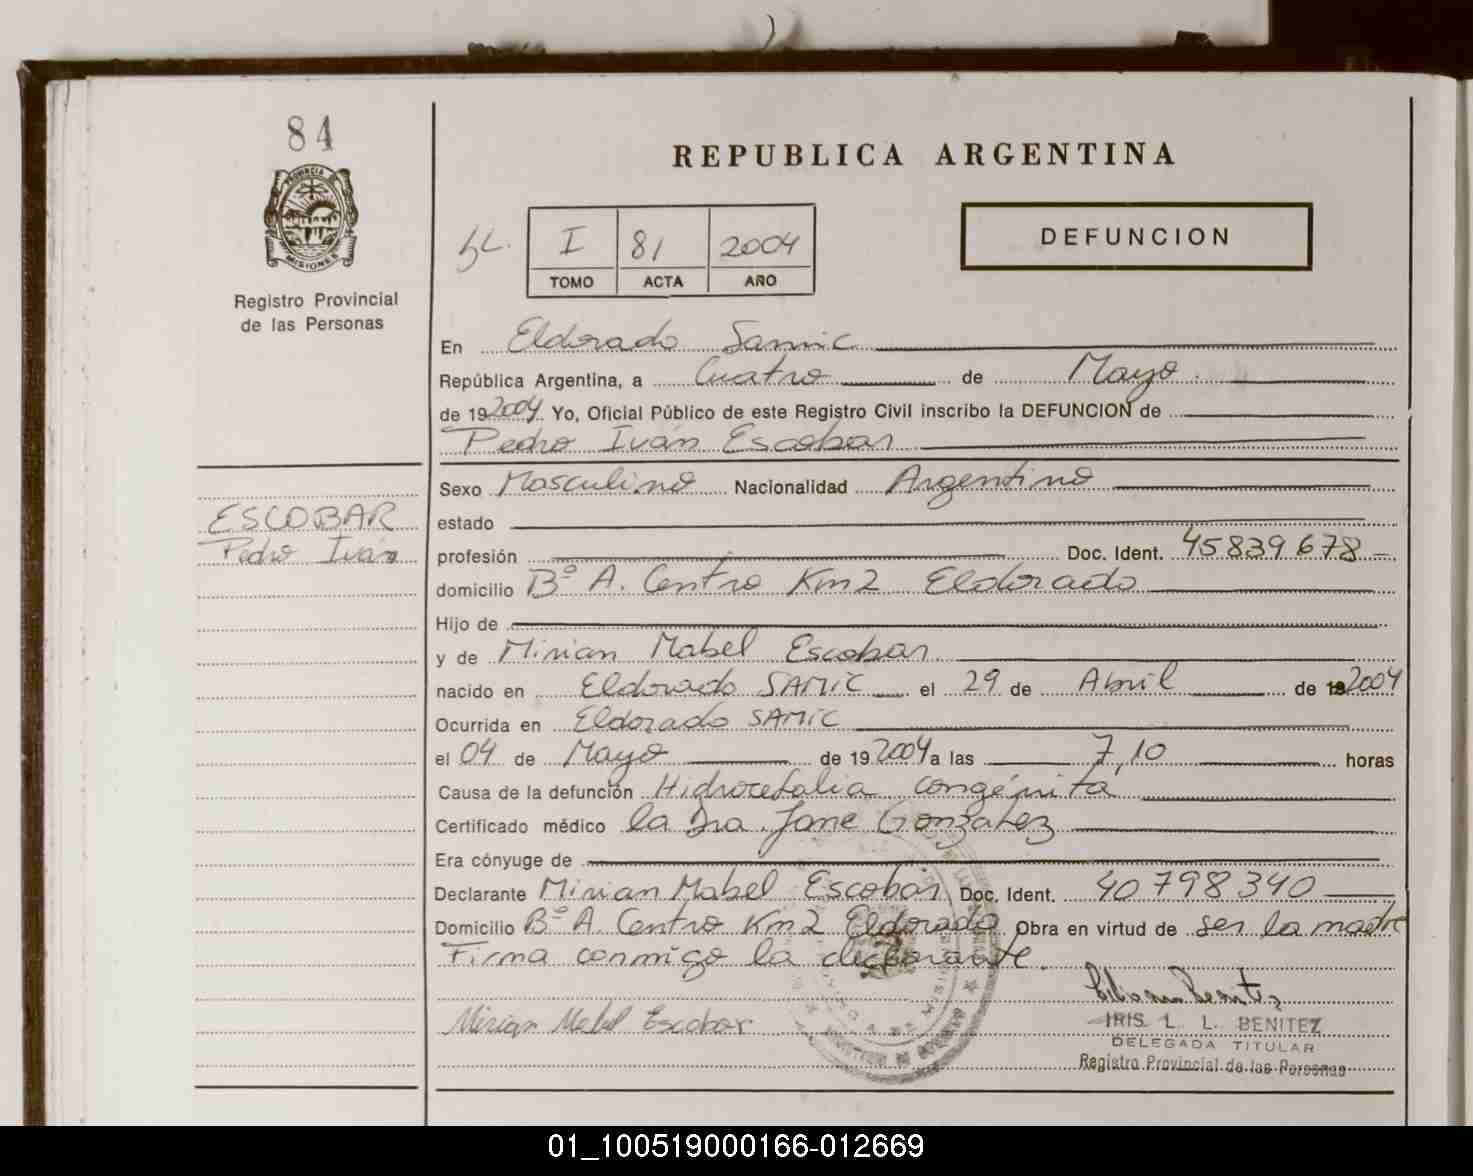 84
PROVINCIA DE
MISIONES
Registro Provincial
de las Personas
REPUBLICA ARGENTINA
I 81 2004
TOMO ACTA AÑO
DEFUNCION
En Eldorado Samic
República Argentina, a Cuatro de Mayo
de 192004 Yo, Oficial Público de este Registro Civil inscribo la DEFUNCION de
Pedro Iván Escobar
ESCOBAR
Pedro Iván
Sexo Masculino Nacionalidad Argentino
estado
profesión Doc. Ident. 45839678
domicilio Bº A. Centro Km2 Eldorado
Hijo de
y de Mirian Mabel Escobar
nacido en Eldorado SAMIC el 29 de Abril de 192004
Ocurrida en Eldorado SAMIC
el 04 de Mayo de 192004 a las 7,10 horas
Causa de la defunción Hidrocefalia congénita
Certificado médico la Dra. Jane Gonzalez
Era cónyuge de
Declarante Mirian Mabel Escobar Doc. Ident. 40798340
Domicilio Bº A. Centro Km2 Eldorado Obra en virtud de ser la madre
Firma conmigo la declarante.
Mirian Mabel Escobar
IRIS L. L. BENITEZ
DELEGADA TITULAR
Registro Provincial de las Personas
01_100519000166-012669